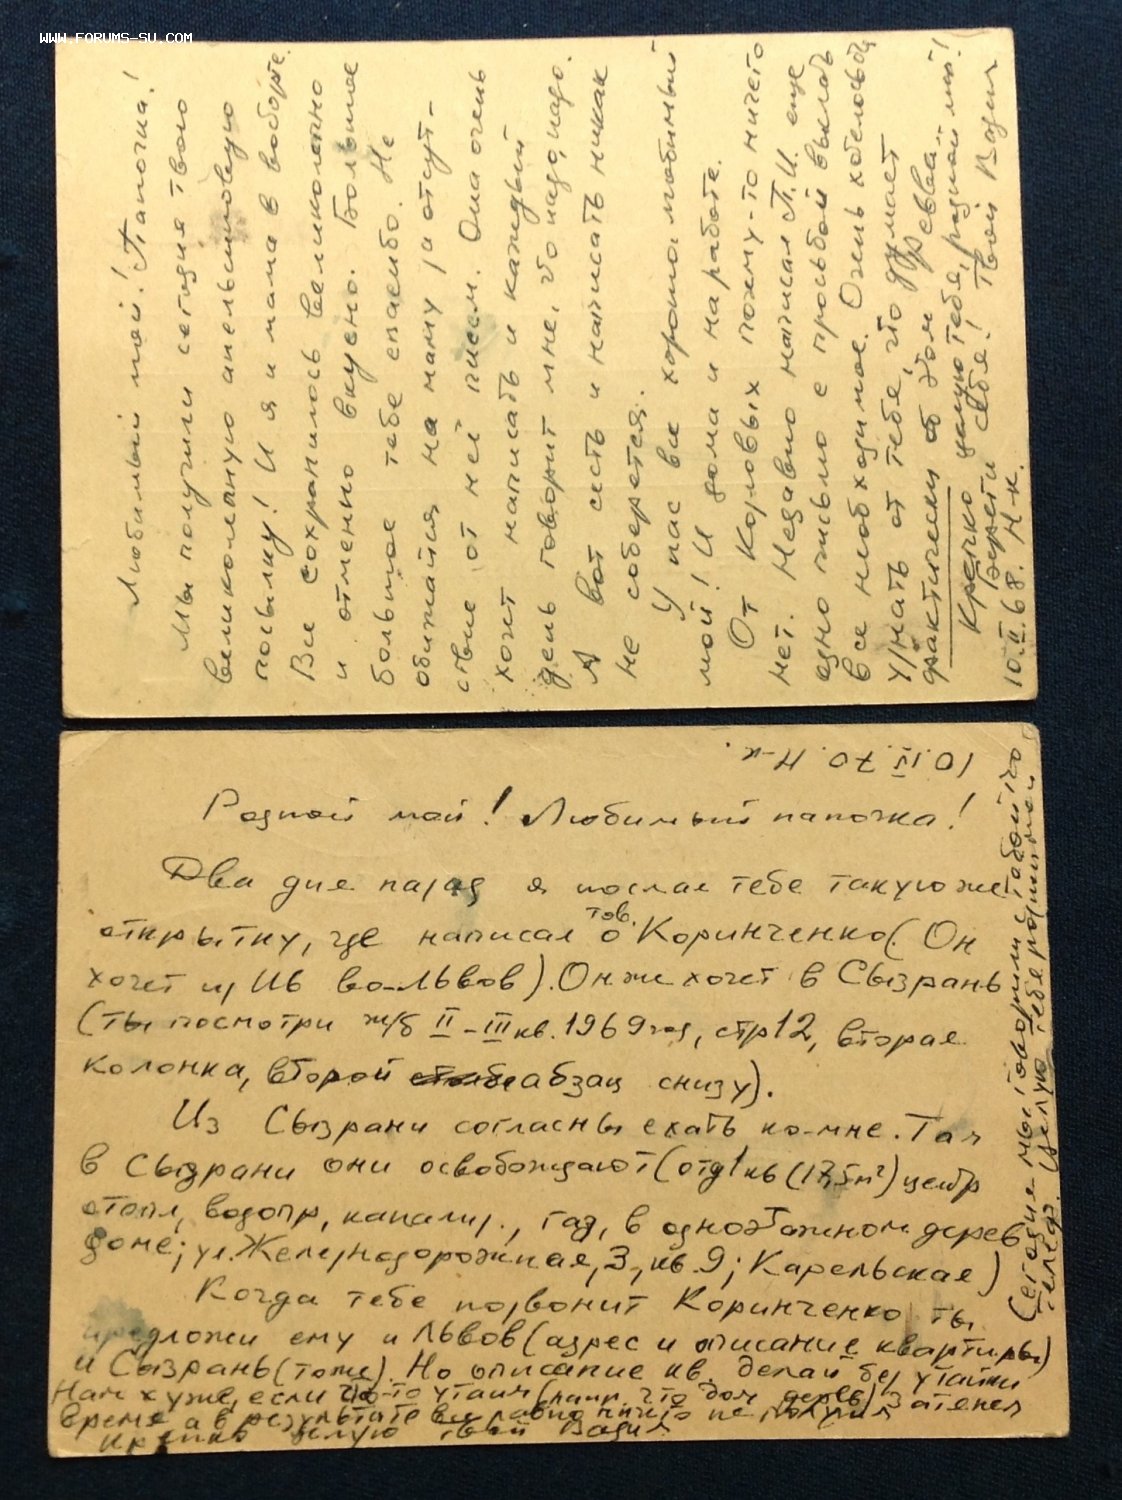 WWW.FORUMS-SU.COM
Любимый мой! Папочка!
Мы получили сегодня твою
великолепную апельсиновую
посылку! И я и мама в восторге.
Все сохранилось великолепно
и отменно вкусно. Большое
большое тебе спасибо. Не
обижайся на маму за отсут-
ствие от неё писем. Она очень
хочет написать и каждый
день говорит мне, что надо, надо.
А вот сесть и написать никак
не соберется.
У нас все хорошо, любимый
мой! И дома и на работе.
От Корловых почему-то ничего
нет. Недавно написал П.И. еще
одно письмо с просьбой выслать
все необходимое. Очень хотелось бы
узнать от тебя, что думает
фактически об этом
Крепко целую тебя, родной мой!
Береги себя! Твой Вадим
10.II.68. Н-к.
10.II.70. Н-к.
Родной мой! Любимый папочка!
Два дня назад я послал тебе такую же
открытку, где написал о тов. Коринченко (Он
хочет из Ив во Львов). Он же хочет в Сызрань
(ты посмотри ж/б II-III кв. 1969 год, стр 12, вторая
колонка, второй абзац снизу).
Из Сызрани согласны ехать ко мне. Там
в Сызрани они освобождают (отд 1 кв (17,5 м²) центр
отопл, водопр, канализ., газ, в одноэтажном дерев
доме; ул. Железнодорожная, 3, кв. 9; Карельская)
Когда тебе позвонит Коринченко ты
предложи ему и Львов (адрес и описание квартиры)
и Сызрань (тоже). Но описание кв. делай без утайки
Нам хуже, если что-то утаим (напр. что дом дерев) Затянем
время а в результате все равно ничего не получим
Крепко целую твой Вадим
Сегодня мы говорили с тобой по
телеф. Целую тебя родной мой